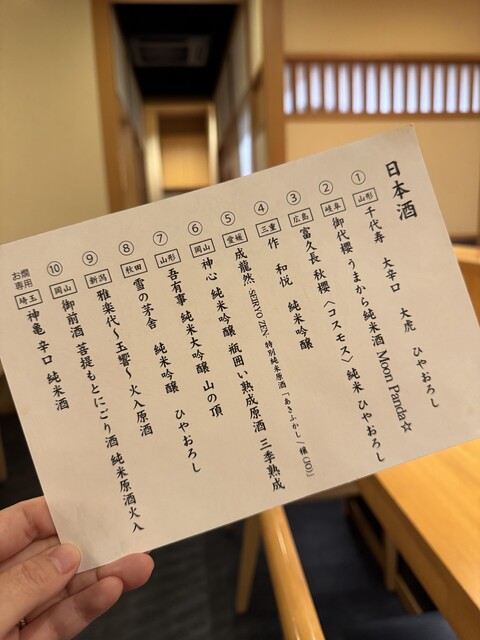 日本酒
① 山形 千代寿 大辛口 大虎 ひやおろし
② 岐阜 御代櫻 うまから純米酒 Moon Panda☆
③ 広島 富久長 秋櫻〈コスモス〉純米 ひやおろし
④ 三重 作 和悦 純米吟醸
⑤ 愛媛 成龍然 SEIRYO ZEN 特別純米原酒「あきふかし
⑥ 岡山 神心 純米吟醸 瓶囲い熟成原酒 三季熟成
⑦ 山形 吾有事 純米大吟醸 山の頂
⑧ 秋田 雪の茅舎 純米吟醸 ひやおろし
⑨ 新潟 雅楽代～玉響～ 火入原酒
⑩ 岡山 御前酒 菩提もとにごり酒 純米原酒火入
お燗専用 埼玉 神亀 辛口 純米酒